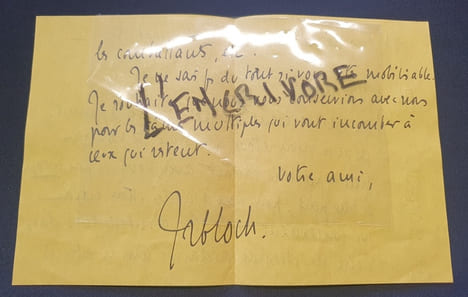 les combattants, etc.
Je ne sais pas du tout si vous êtes mobilisable.
Je souhaite vous avec nous
pour les multiples qui vont incomber à
ceux qui restent.
L'ENCRIVORE
Votre ami,
JRBloch.